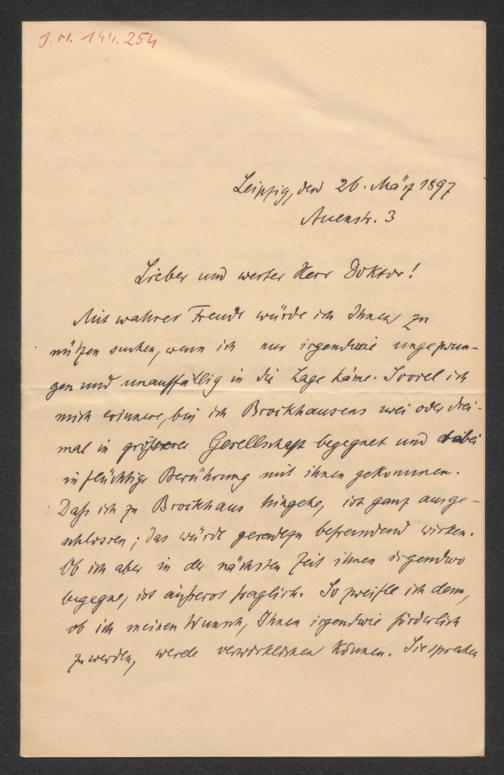 J.N. 144.254
Leipzig, den 26. März 1897
Auenstr. 3
Lieber und werter Herr Doktor!
Mit wahrer Freude würde ich Ihnen zu
nützen suchen, wenn ich nur irgendwie ungezwun-
gen und unauffällig in die Lage käme. Soviel ich
mich erinnere, bin ich Brockhausens zwei oder drei-
mal in größerer Gesellschaft begegnet und dabei
in flüchtige Berührung mit ihnen gekommen.
Daß ich zu Brockhaus hingehe, ist ganz ausge-
schlossen; das würde geradezu befremdend wirken.
Ob ich aber in der nächsten Zeit ihnen irgendwo
begegne, ist äußerst fraglich. So zweifle ich denn,
ob ich meinen Wunsch, Ihnen irgendwie förderlich
zu werden, werde verwirklichen können. Sie sprechen